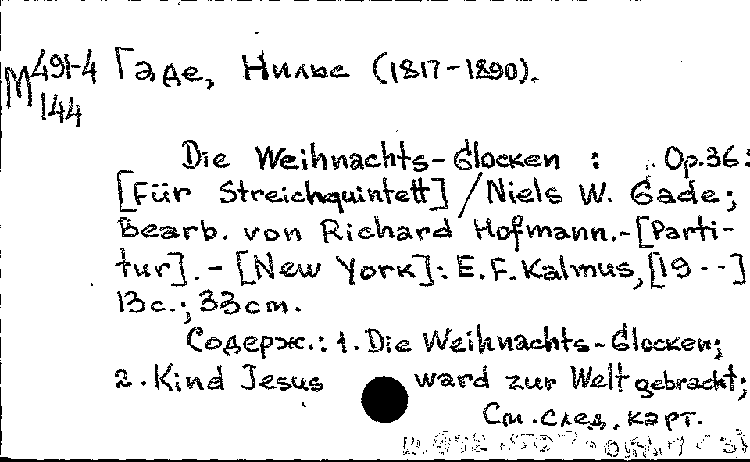 М 491-4
144
Гаде, Нильс (1817-1890).
Die Weihnachts-Glocken : Op.36 :
[Für Streichquintett] / Niels W. Gade;
Bearb. von Richard Hofmann.-[Parti-
tur].-[New York]: E.F.Kalmus, [19--]
13с.; 33cm.
Содерж.: 1. Die Weihnachts-Glocken;
2. Kind Jesus ward zur Welt gebracht;
См. след. карт.